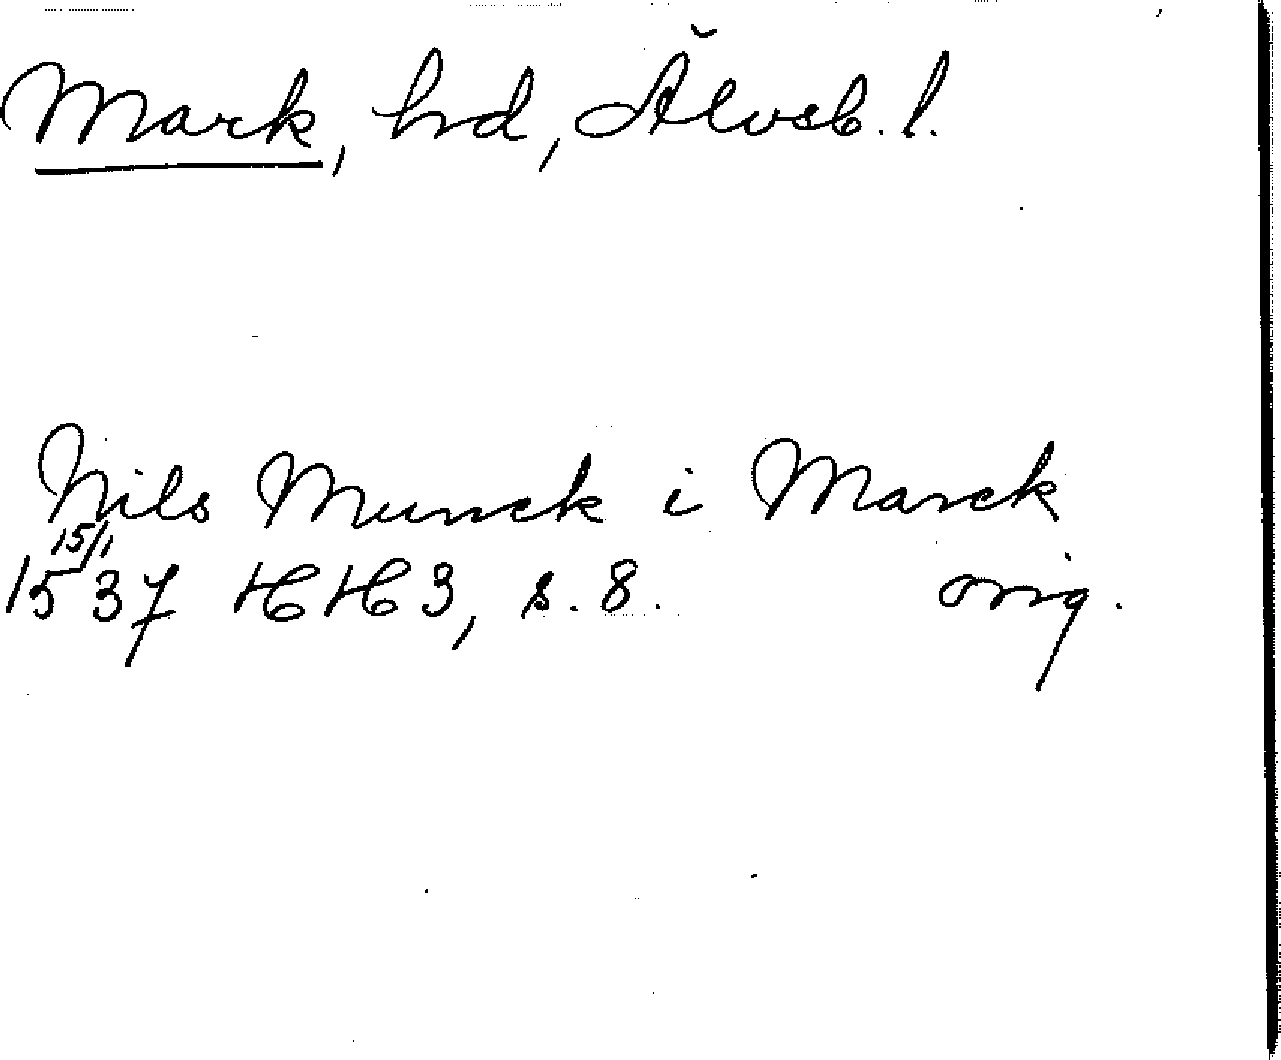 Mark, hd, Älvsb. l.
Nils Munck i Marck
15/1
1537 HH 3, s. 8. orig.